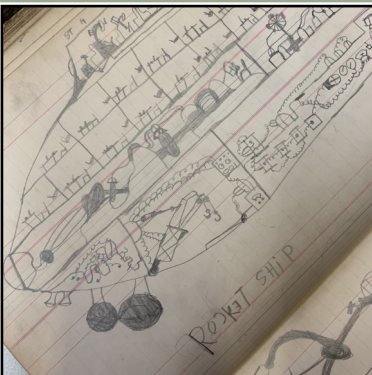 ROCKET SHIP